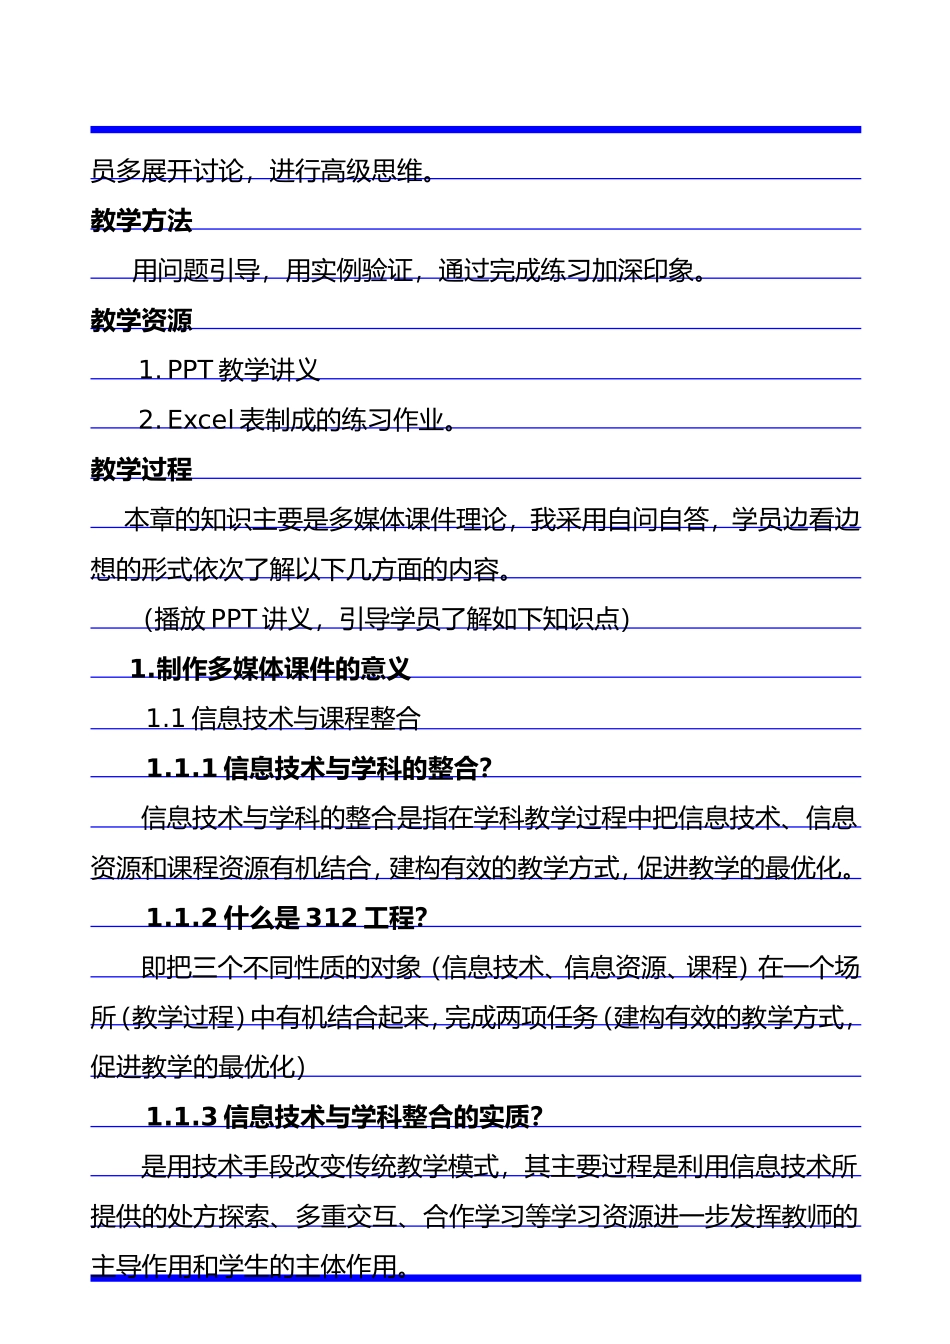 员多展开讨论，进行高级思维。
教学方法
用问题引导，用实例验证，通过完成练习加深印象。
教学资源
1. PPT 教学讲义
2. Excel 表制成的练习作业。
教学过程
本章的知识主要是多媒体课件理论，我采用自问自答，学员边看边
想的形式依次了解以下几方面的内容。
（播放 PPT 讲义，引导学员了解如下知识点）
1.制作多媒体课件的意义
1.1 信息技术与课程整合
1.1.1 信息技术与学科的整合？
信息技术与学科的整合是指在学科教学过程中把信息技术、信息
资源和课程资源有机结合，建构有效的教学方式，促进教学的最优化。
1.1.2 什么是 312 工程？
即把三个不同性质的对象（信息技术、信息资源、课程）在一个场
所（教学过程）中有机结合起来，完成两项任务（建构有效的教学方式，
促进教学的最优化）
1.1.3 信息技术与学科整合的实质？
是用技术手段改变传统教学模式，其主要过程是利用信息技术所
提供的处方探索、多重交互、合作学习等学习资源进一步发挥教师的
主导作用和学生的主体作用。